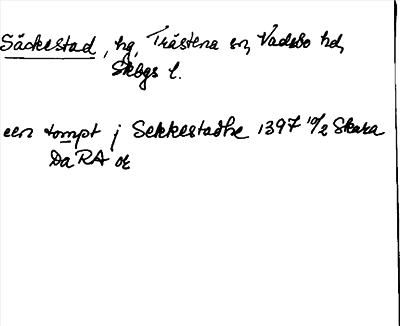 Säckestad, hg, Trästena sn, Vadsbo hd,
Skbgs l.
een tompt j Sekkestadhe 1397 10/2 Skara
Da RA or